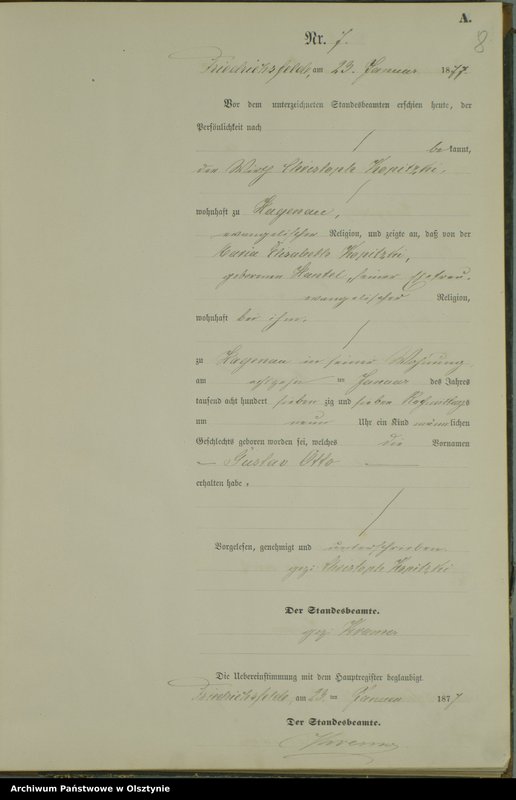 A.
8
Nr. 7.
Friedrichsfelde, am 23. Januar 1877.
Vor dem unterzeichneten Standesbeamten erschien heute, der
Persönlichkeit nach
bekannt,
der Wirth Christoph Kopitzki,
wohnhaft zu Hagenau,
evangelischer Religion, und zeigte an, daß von der
Maria Elisabeth Kopitzki,
geborenen Hantel, seiner Ehefrau,
evangelischer Religion,
wohnhaft bei ihm,
zu Hagenau in seiner Wohnung
am achtzehn ten Januar des Jahres
tausend acht hundert sieben zig und sieben Nachmittags
um neun Uhr ein Kind männlichen
Geschlechts geboren worden sei, welches die Vornamen
Gustav Otto
erhalten habe.
Vorgelesen, genehmigt und unterschrieben
gez: Christoph Kopitzki
Der Standesbeamte.
gez: Kramer
Die Uebereinstimmung mit dem Hauptregister beglaubigt
Friedrichsfelde, am 23 ten Januar 1877
Der Standesbeamte.
Archiwum Państwowe w Olsztynie